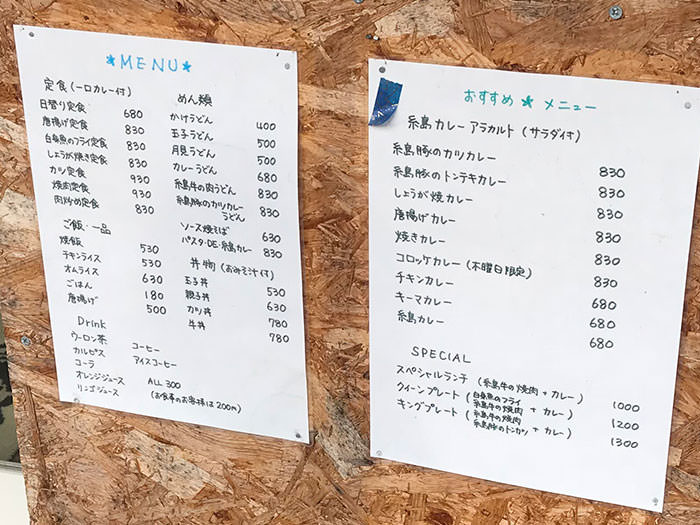 *MENU*
定食(一口カレー付)
日替り定食 680
唐揚げ定食 830
白身魚のフライ定食 830
しょうが焼き定食 830
カツ定食 930
焼肉定食 930
肉炒め定食 830
ご飯・一品
焼飯 530
チキンライス 530
オムライス 630
ごはん 180
唐揚げ 500
めん類
かけうどん 400
玉子うどん 500
月見うどん 500
カレーうどん 680
糸島牛の肉うどん 830
糸島豚のカツカレー
うどん 830
ソース焼そば 630
パスタ・DE・糸島カレー 830
丼物(おみそ汁付)
玉子丼 530
親子丼 630
カツ丼 780
牛丼 780
Drink
ウーロン茶 コーヒー
カルピス アイスコーヒー
コーラ
オレンジジュース ALL 300
リンゴジュース (お食事のお客様は200円)
おすすめ★メニュー
糸島カレーアラカルト(サラダ付き)
糸島豚のカツカレー 830
糸島豚のトンテキカレー 830
しょうが焼カレー 830
唐揚げカレー 830
焼きカレー 830
コロッケカレー(木曜日限定) 680
チキンカレー 680
キーマカレー 680
糸島カレー 680
SPECIAL
スペシャルランチ(糸島牛の焼肉+カレー) 1000
クイーンプレート(白身魚のフライ
糸島牛の焼肉+カレー) 1200
キングプレート(糸島牛の焼肉
糸島豚のトンカツ+カレー) 1300